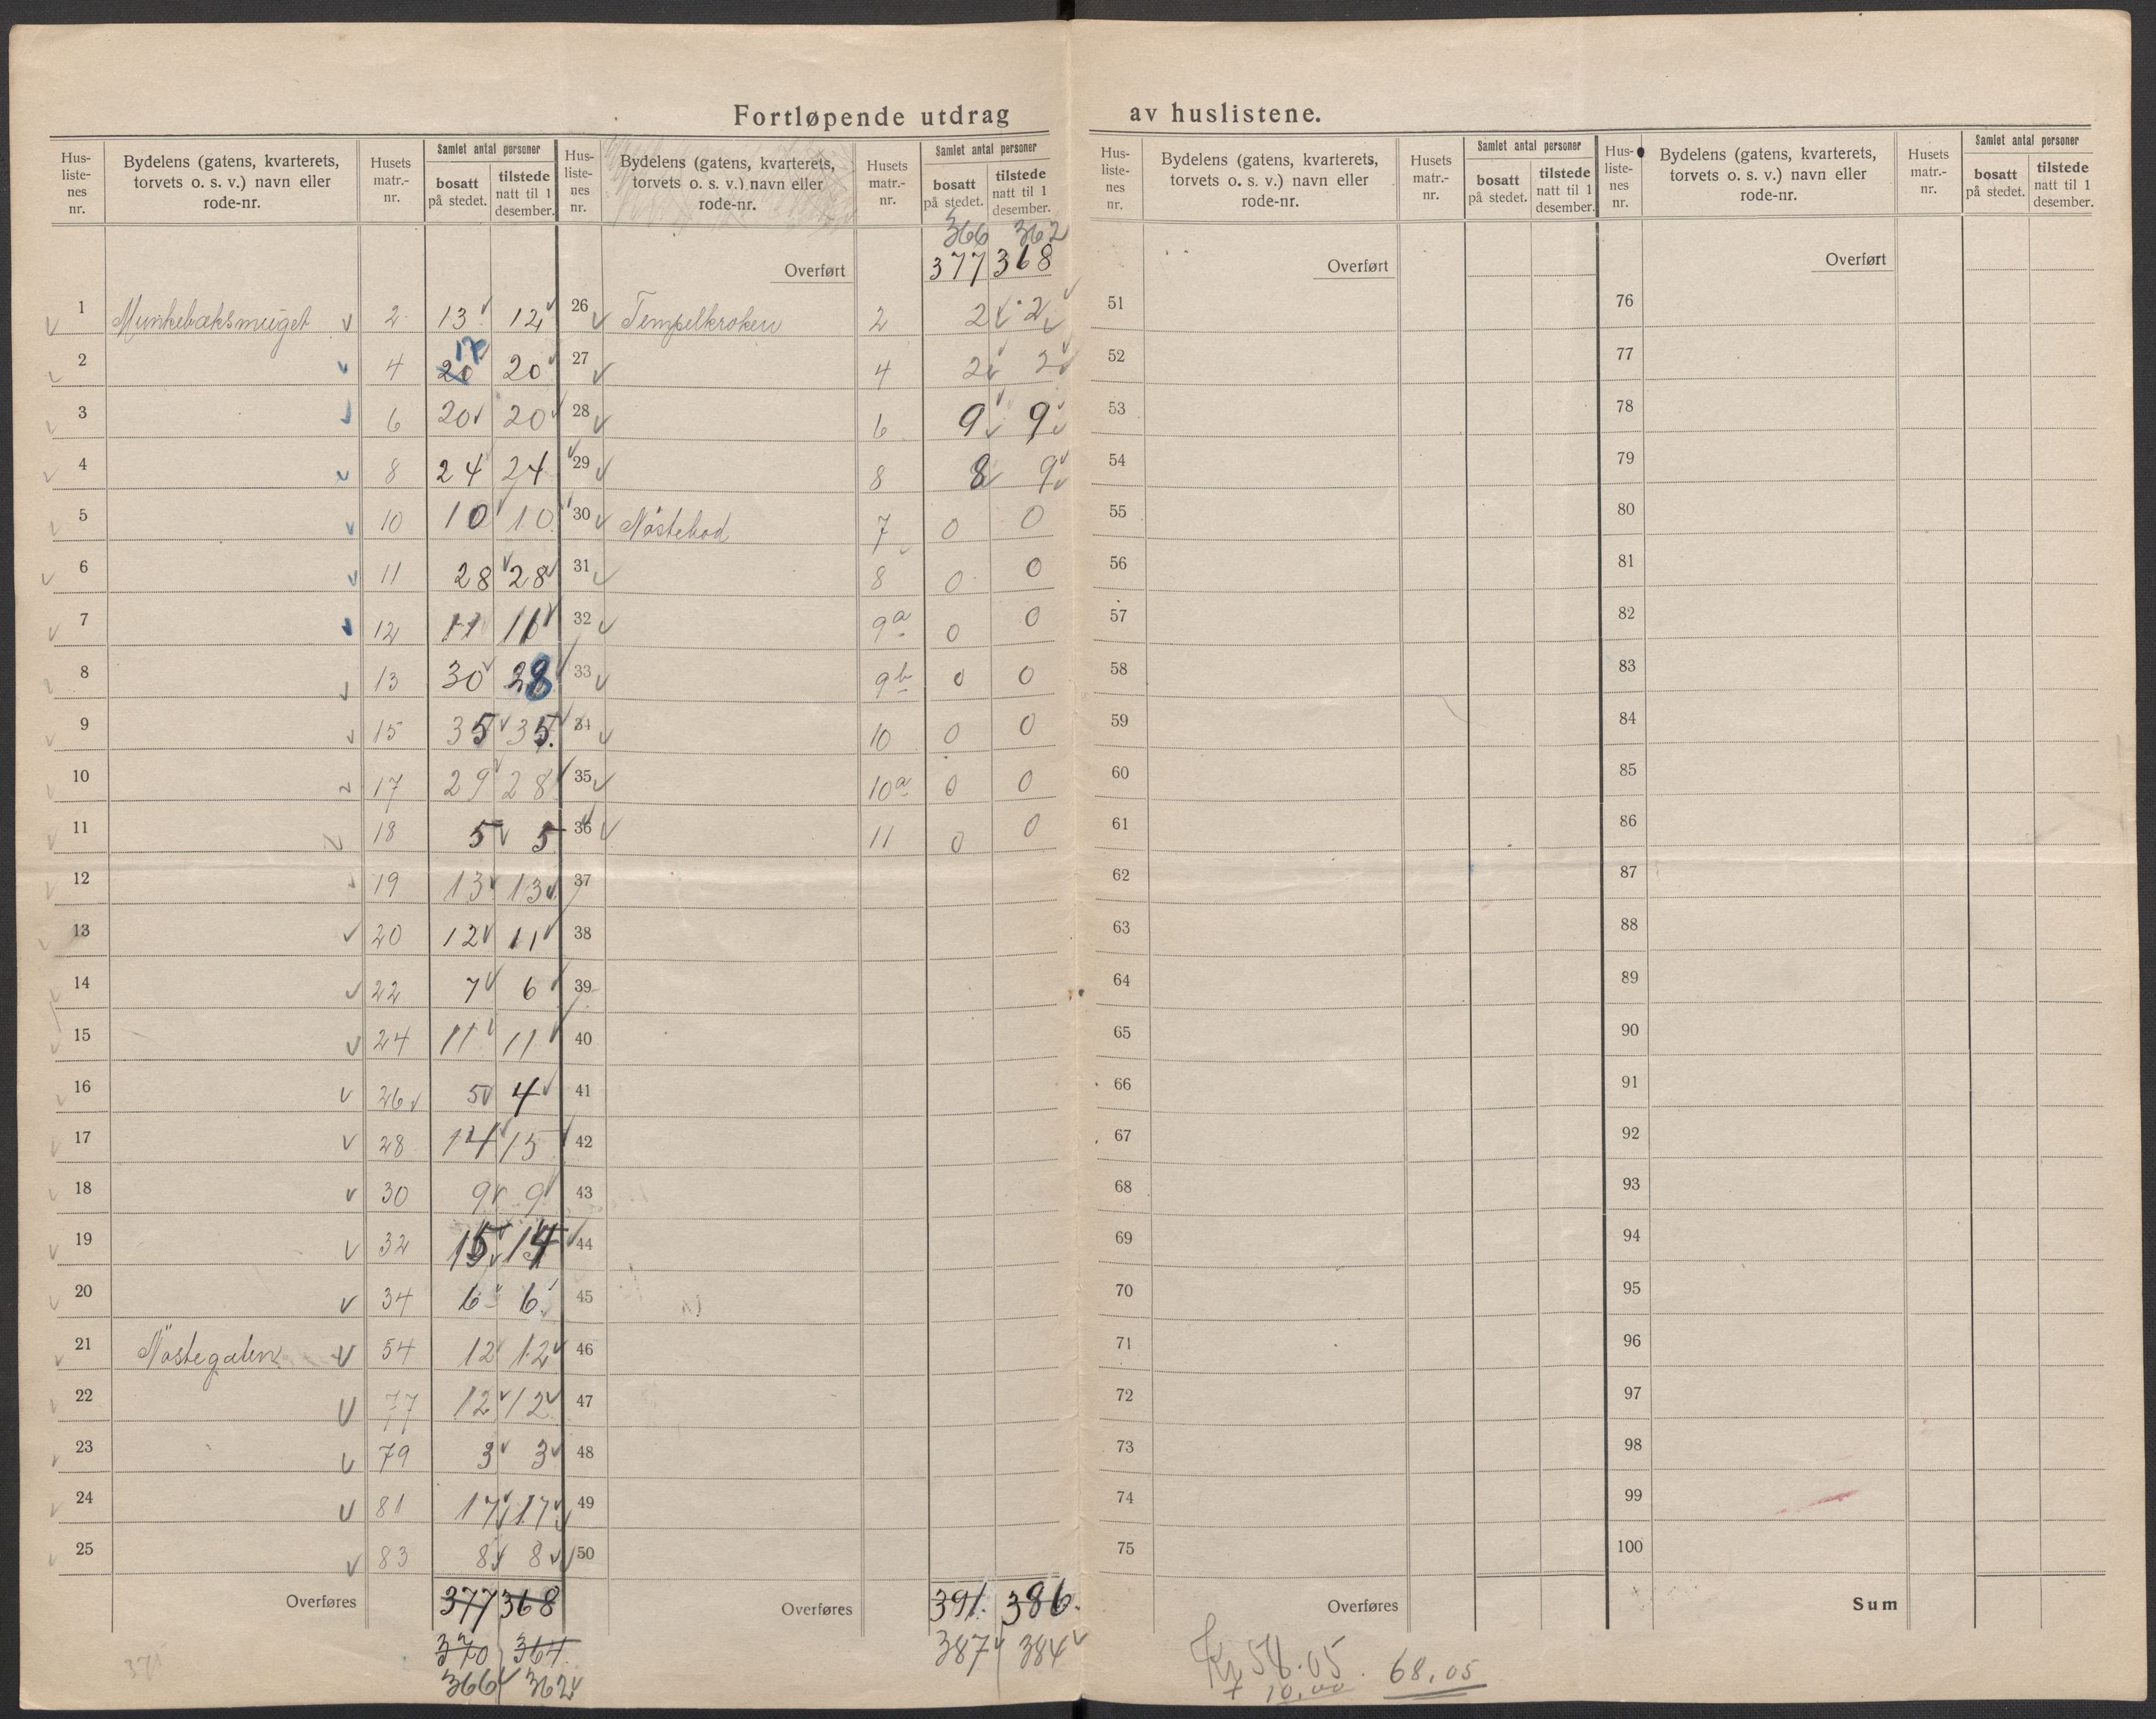 Fortløpende utdrag av huslistene.
Hus-listenes nr. Bydelens (gatens, kvarterets, torvets o. s. v.) navn eller rode-nr. Husets matr.-nr. Samlet antal personer bosatt på stedet. tilstede natt til 1 desember.
1 Munkebæksmuget 2 13 12
2 4 20 17 20
3 6 20 20
4 8 24 24
5 10 10 10
6 11 28 28
7 12 11 11
8 13 30 28
9 15 35 35
10 17 29 28
11 18 5 5
12 19 13 13
13 20 12 11
14 22 7 6
15 24 11 11
16 26 5 4
17 28 14 15
18 30 9 9
19 32 15 14
20 34 6 6
21 Nöstegaten 54 12 12
22 77 12 12
23 79 3 3
24 81 17 17
25 83 8 8
Overføres 377 368
370 364
366 362
371
Hus-listenes nr. Bydelens (gatens, kvarterets, torvets o. s. v.) navn eller rode-nr. Husets matr.-nr. Samlet antal personer bosatt på stedet. tilstede natt til 1 desember.
366 362
Overført 377 368
26 Tempelkroken 2 2 2
27 4 2 2
28 6 9 9
29 8 8 9
30 Nöstebod 7 0 0
31 8 0 0
32 9a 0 0
33 9b 0 0
34 10 0 0
35 10a 0 0
36 11 0 0
37
38
39
40
41
42
43
44
45
46
47
48
49
50
Overføres 391. 386.
387 384
Hus-listenes nr. Bydelens (gatens, kvarterets, torvets o. s. v.) navn eller rode-nr. Husets matr.-nr. Samlet antal personer bosatt på stedet. tilstede natt til 1 desember.
Overført
51
52
53
54
55
56
57
58
59
60
61
62
63
64
65
66
67
68
69
70
71
72
73
74
75
Overføres
Kr 58.05. 68.05
+ 10.00
Hus-listenes nr. Bydelens (gatens, kvarterets, torvets o. s. v.) navn eller rode-nr. Husets matr.-nr. Samlet antal personer bosatt på stedet. tilstede natt til 1 desember.
Overført
76
77
78
79
80
81
82
83
84
85
86
87
88
89
90
91
92
93
94
95
96
97
98
99
100
Sum